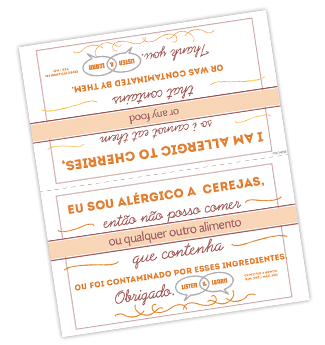 Thank you...
LISTEN & LEARN
OR WAS CONTAMINATED BY THEM.
that contains
or any food
so i cannot eat them
I AM ALLERGIC TO CHERRIES,
EU SOU ALÉRGICO A CEREJAS,
então não posso comer
ou qualquer outro alimento
que contenha
OU FOI CONTAMINADO POR ESSES INGREDIENTES.
Obrigado.
LISTEN & LEARN